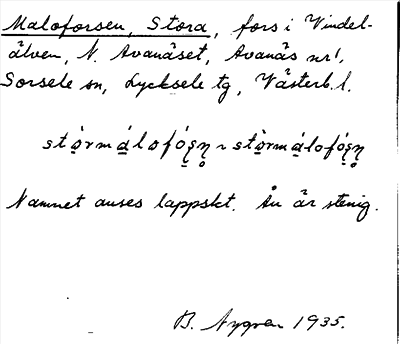 Maloforsen, Stora, fors i Vindel-
älven, N. Avanäset, Avanäs nr 1,
Sorsele sn, Lycksele tg, Västerb. l.
Namnet anses lappskt. Ån är stenig.
B. Nygren 1935.